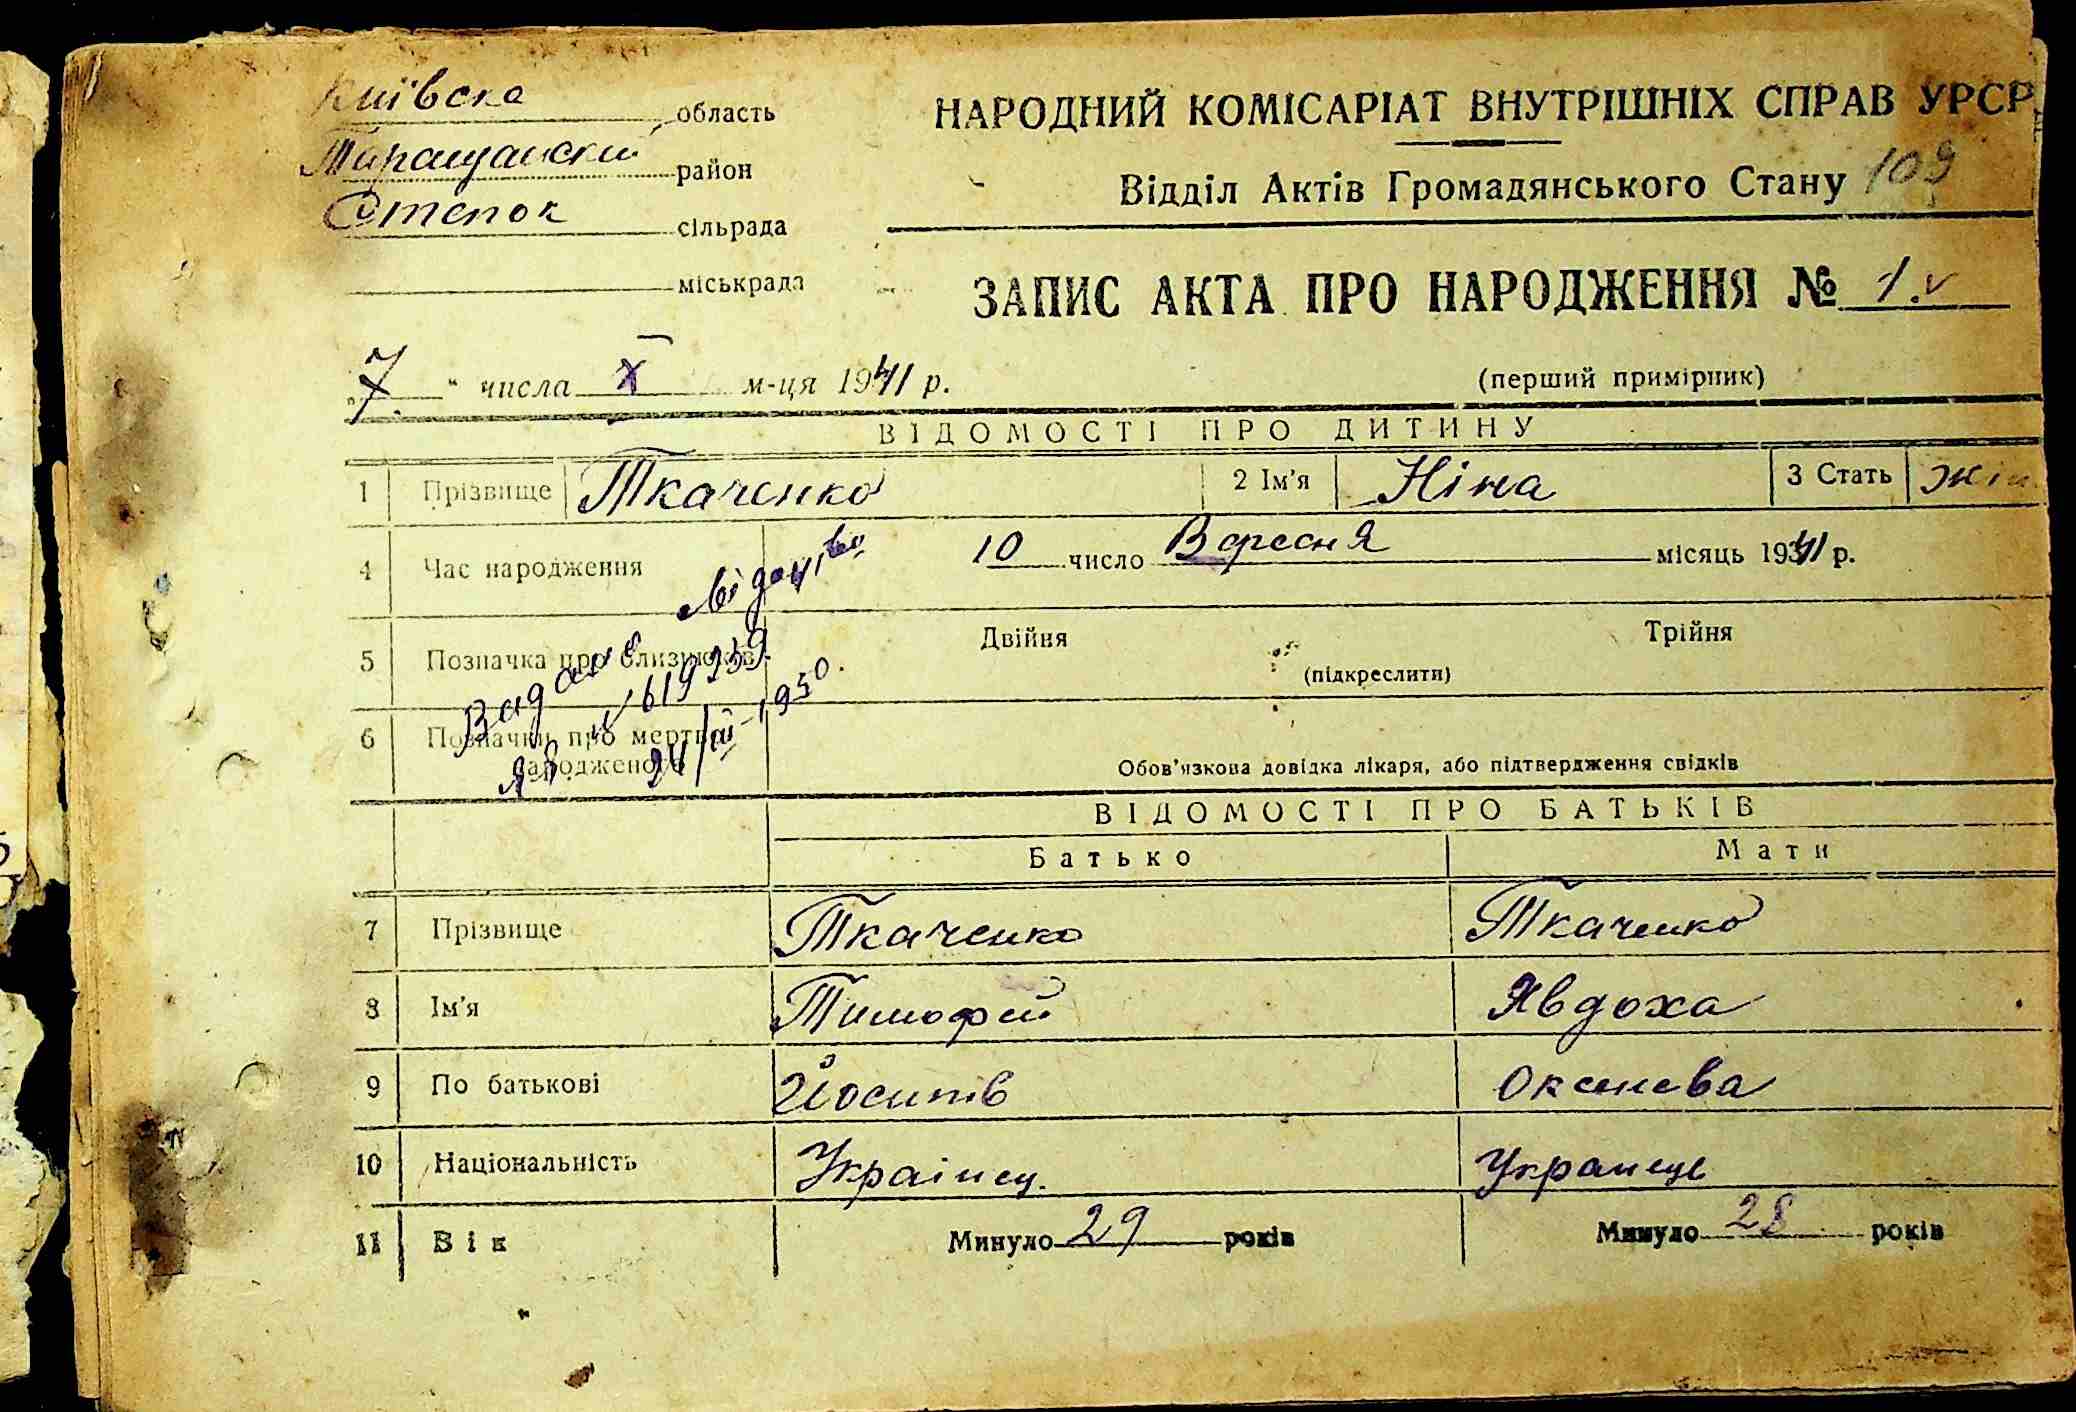 Київска область
Таращанский район
Степок сільрада
міськрада
НАРОДНИЙ КОМІСАРІАТ ВНУТРІШНІХ СПРАВ УРСР
Відділ Актів Громадянського Стану 109
ЗАПИС АКТА ПРО НАРОДЖЕННЯ № 1.
"7" числа X м-ця 1941 р.
(перший примірник)
ВІДОМОСТІ ПРО ДИТИНУ
1 Прізвище Ткаченко 2 Ім'я Ніна 3 Стать жін
4 Час народження 10 число Вересня місяць 1941 р.
5 Позначка про близнюків Двійня Трійня
(підкреслити)
6 Позначки про мертво
народженого
Обов'язкова довідка лікаря, або підтвердження свідків
Видане свідоцтво
№ 619939
24/III-1950.
ВІДОМОСТІ ПРО БАТЬКІВ
Батько Мати
7 Прізвище Ткаченко Ткаченко
8 Ім'я Тимофей Явдоха
9 По батькові Йосипів Оксенева
10 Національність Українец. Украинце
11 Вік Минуло 29 років Минуло 28 років